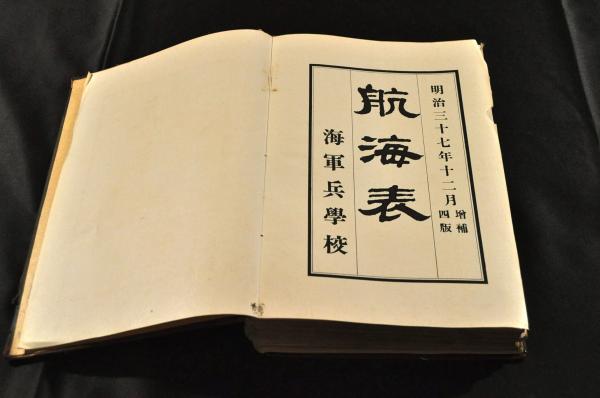 明治三十七年十二月增補四版
航海表
海軍兵學校